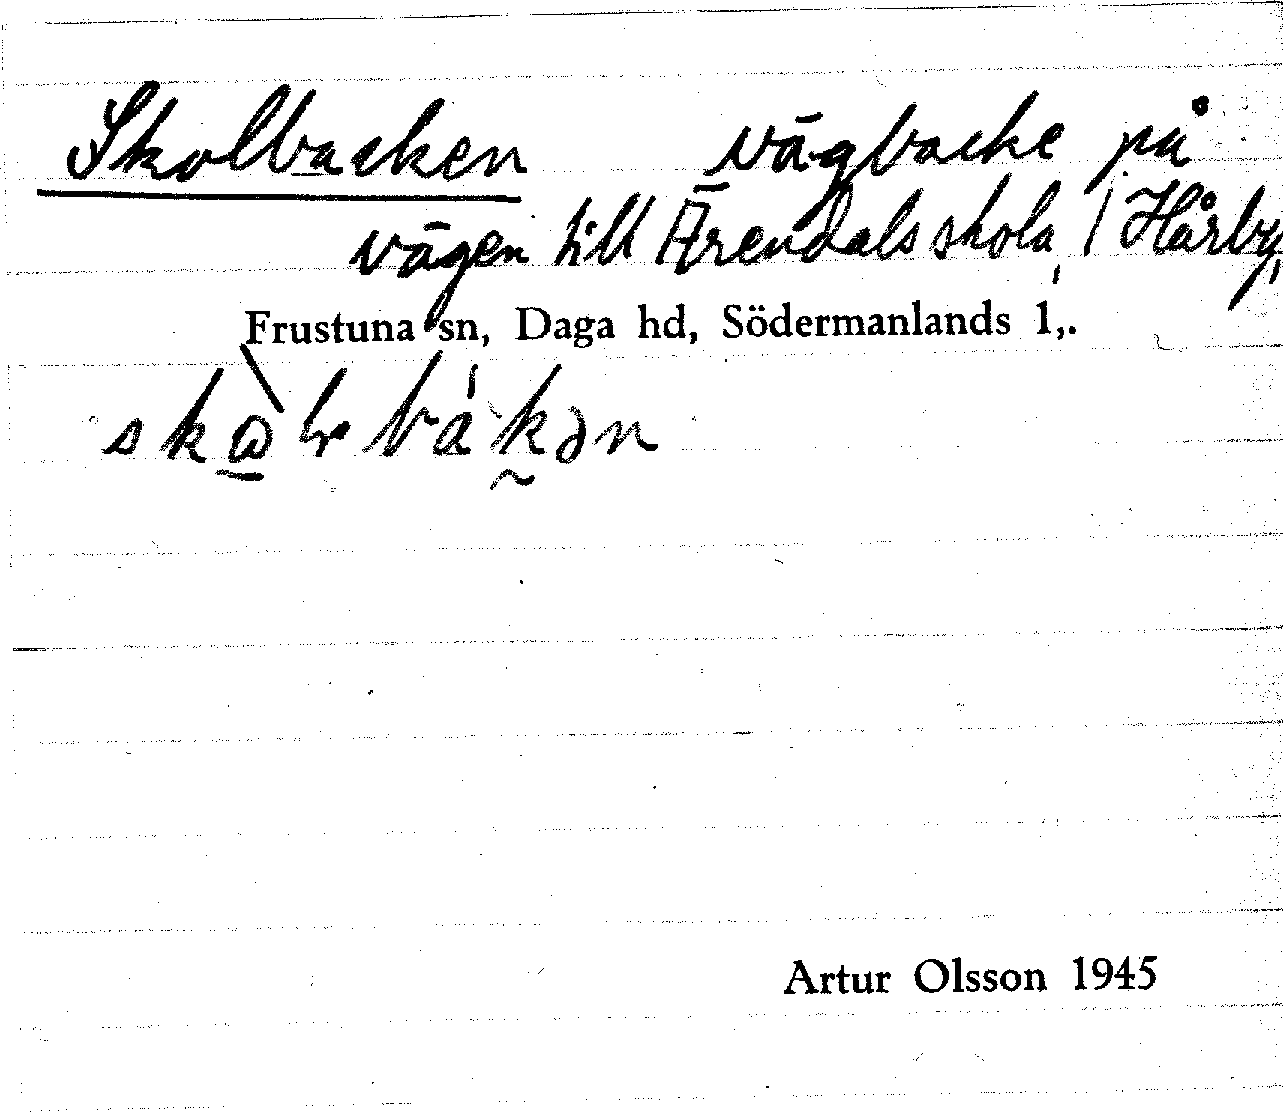 Skolbacken vägbacke på
vägen till Ärendals skola, / Hårby,
Frustuna sn, Daga hd, Södermanlands l,.
Artur Olsson 1945